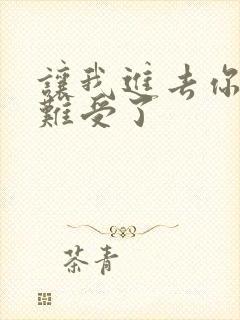 讓我進去你
難受了
茶青